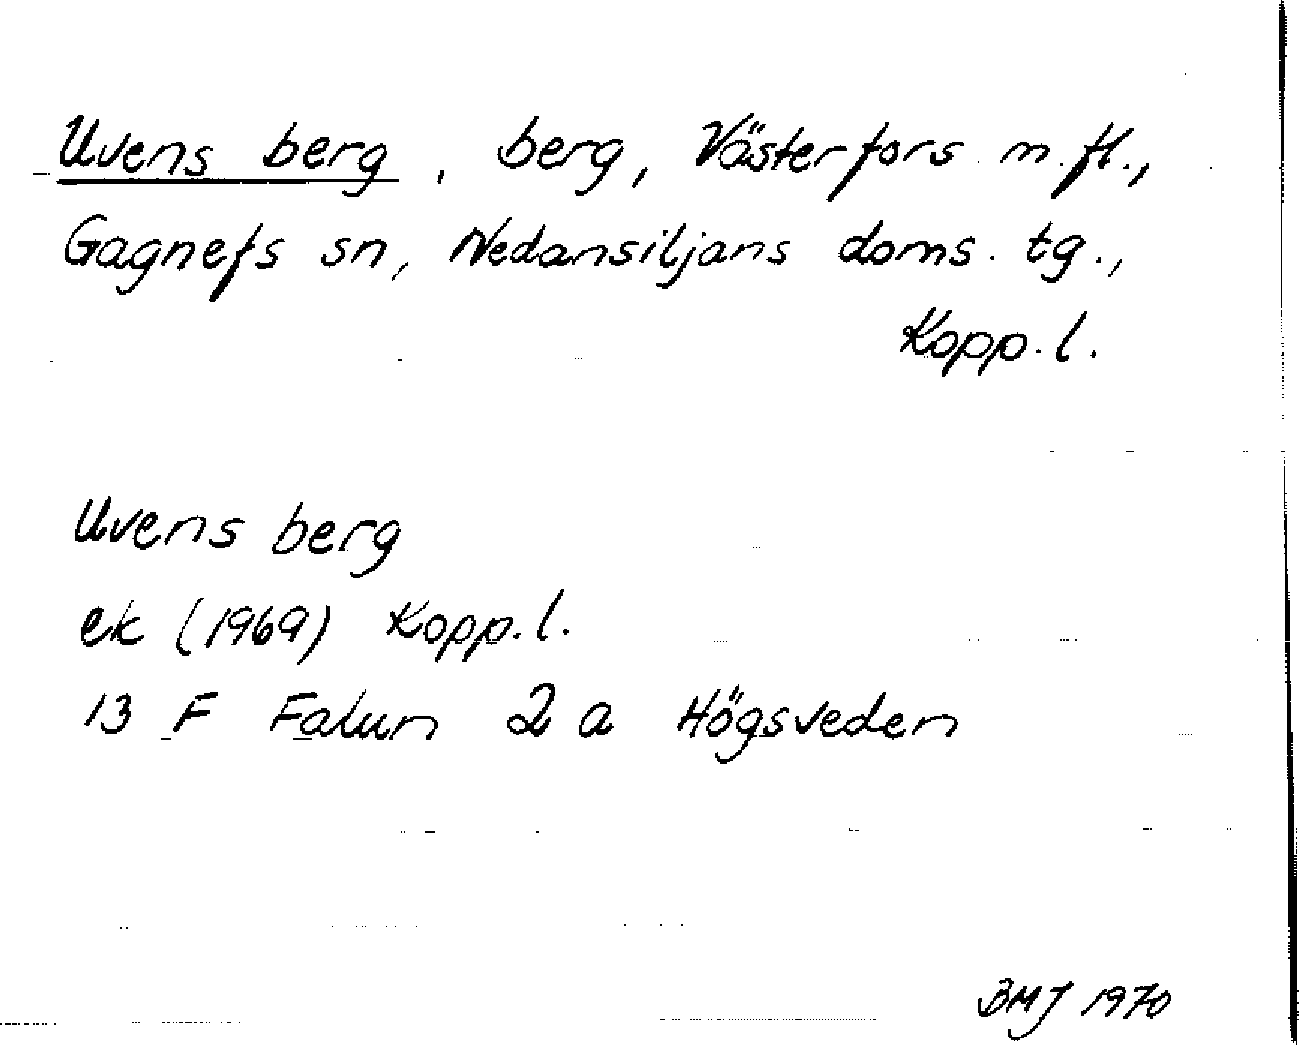 Uvens berg, berg, Västerfors m.fl.,
Gagnefs sn, Nedansiljans doms. tg.,
Kopp. l.
Uvens berg
ek (1969) Kopp. l.
13 F Falun 2 a Högsveden
BMJ 1970